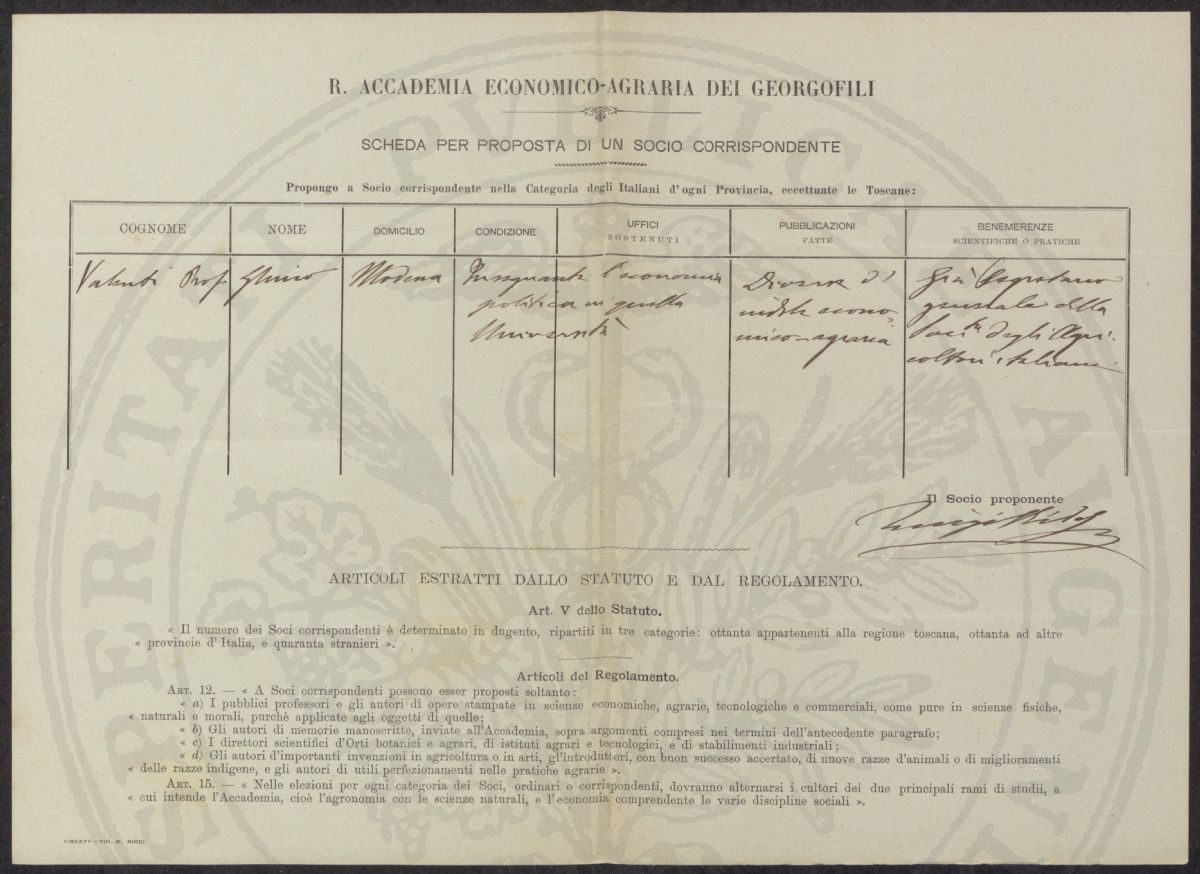 R. ACCADEMIA ECONOMICO-AGRARIA DEI GEORGOFILI
SCHEDA PER PROPOSTA DI UN SOCIO CORRISPONDENTE
Propongo a Socio corrispondente nella Categoria degli Italiani d'ogni Provincia, eccettuate le Toscane:
COGNOME
NOME
DOMICILIO
CONDIZIONE
UFFICI
SOSTENUTI
PUBBLICAZIONI
FATTE
BENEMERENZE
SCIENTIFICHE O PRATICHE
Valenti Prof.
Ghino
Modena
Insegnante l'economia
politica in quella
Università
Diverse d'
indole econo-
mico-agraria
Già Segretario
generale della
Socità degli Agri-
coltori italiani
Il Socio proponente
Luigi
ARTICOLI ESTRATTI DALLO STATUTO E DAL REGOLAMENTO.
Art. V dello Statuto.
« Il numero dei Soci corrispondenti è determinato in dugento, ripartiti in tre categorie: ottanta appartenenti alla regione toscana, ottanta ad altre
« provincie d'Italia, e quaranta stranieri ».
Articoli del Regolamento.
ART. 12. — « A Soci corrispondenti possono esser proposti soltanto:
« a) I pubblici professori e gli autori di opere stampate in scienze economiche, agrarie, tecnologiche e commerciali, come pure in scienze fisiche,
« naturali e morali, purchè applicate agli oggetti di quelle;
« b) Gli autori di memorie manoscritte, inviate all'Accademia, sopra argomenti compresi nei termini dell'antecedente paragrafo;
« c) I direttori scientifici d'Orti botanici e agrari, di istituti agrari e tecnologici, e di stabilimenti industriali;
« d) Gli autori d'importanti invenzioni in agricoltura o in arti, gl'introduttori, con buon successo accertato, di nuove razze d'animali o di miglioramenti
« delle razze indigene, e gli autori di utili perfezionamenti nelle pratiche agrarie ».
ART. 15. — « Nelle elezioni per ogni categoria dei Soci, ordinari o corrispondenti, dovranno alternarsi i cultori dei due principali rami di studii, a
« cui intende l'Accademia, cioè l'agronomia con le scienze naturali, e l'economia comprendente le varie discipline sociali ».
FIRENZE — TIP. M. RICCI
PROSPERITATI PUBLICAE AUGENDAE